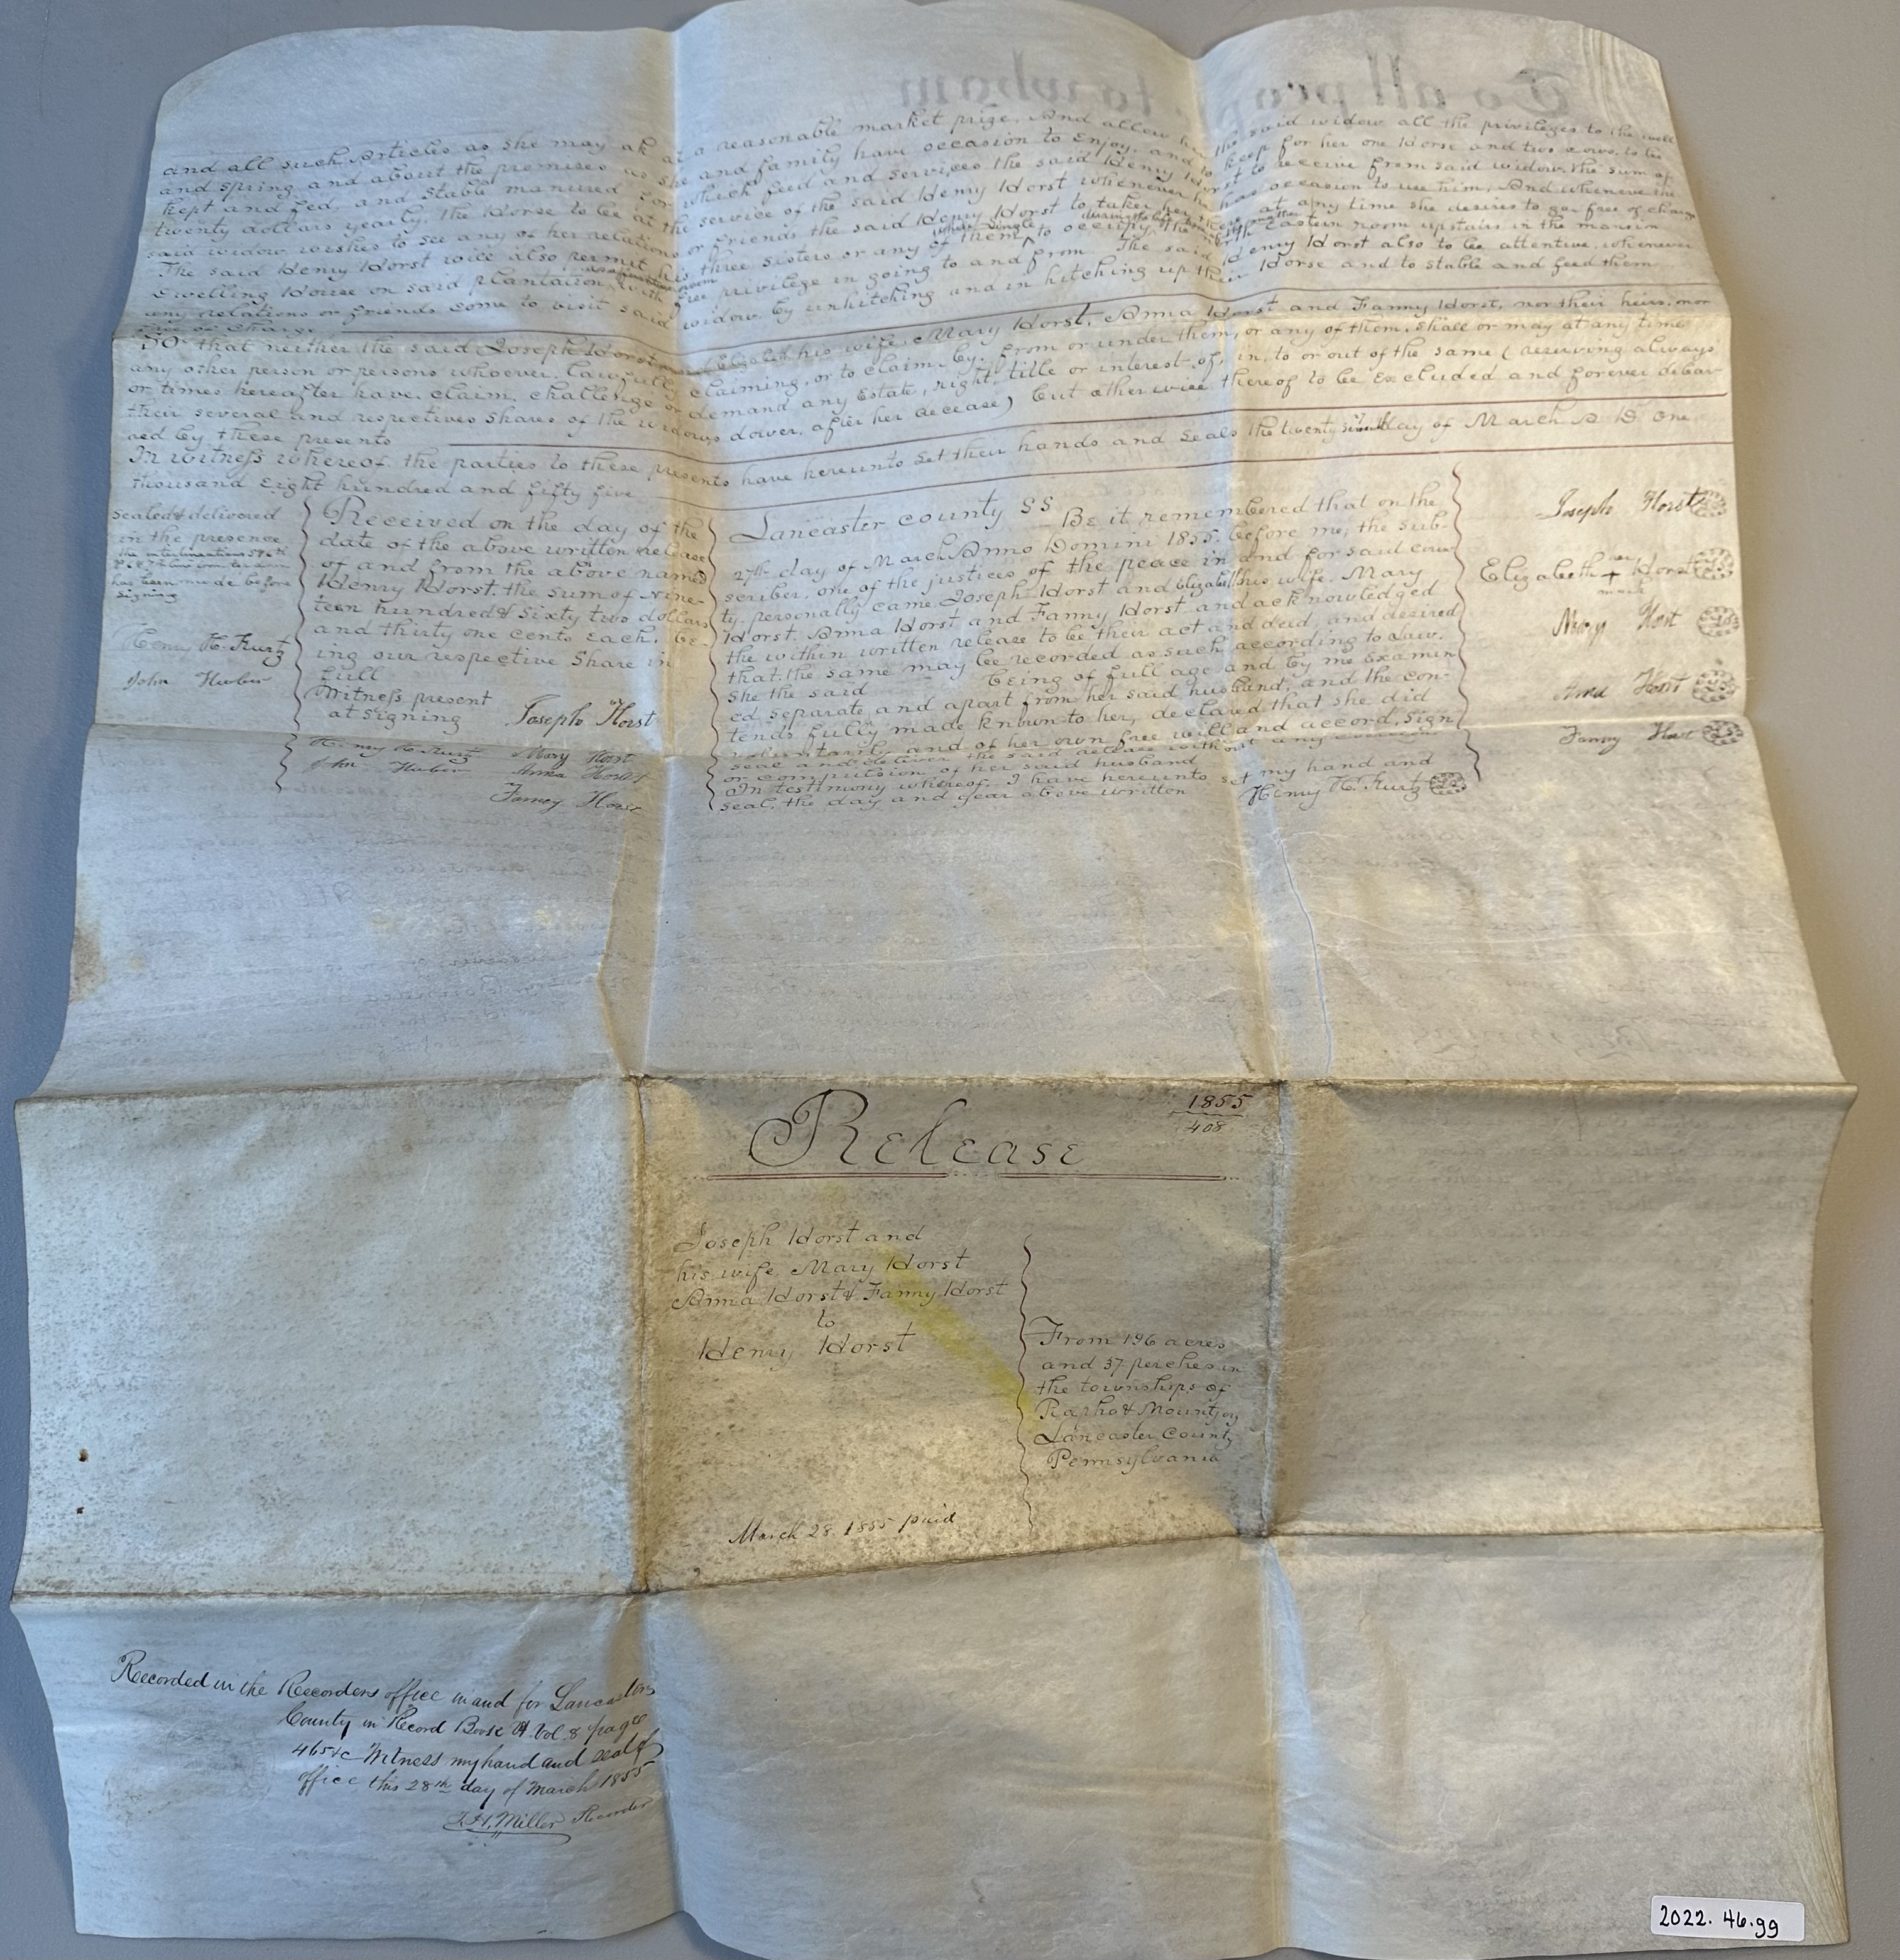 and all such Articles as she may ak at a reasonable market prize. And allow her the said widow all the privileges to the well
and spring and about the premises as she and family have occasion to Enjoy. and to keep for her one Horse and two cows. to be
kept and fed, and stable manured for which feed and services the said Henry Horst to receive from said widow. the sum of
twenty dollars yearly. the Horse to be at the service of the said Henry Horst whenever he has occasion to use him, And whenever the
said widow wishes to see any of her relations or friends the said Henry Horst to taker her there at any time she desires to go free of charge
The said Henry Horst will also permit his three sisters or any of them while single to occupy the north Eastern room upstairs in the mansion
dwelling House on said plantation, with free privilege in going to and from The said Henry Horst also to be attentive, whenever
any relations or friends come to visit said widow. by unhitching and in hitching up their Horse and to stable and feed them
free of Charge
So that neither the said Joseph Horst and Elizabeth his wife, Mary Horst, Anna Horst and Fanny Horst, nor their heirs, nor
any other person or persons whoever, lawfully claiming, or to claim by, from or under them, or any of them, shall or may at any time
or times hereafter have, claim, challenge or demand any Estate, right, title or interest of, in, to or out of the same ( reserving always
their several and respectives shares of the widows dower, after her decease) but otherwise thereof to be Excluded and forever debar-
red by these presents
In witness whereof, the parties to these presents have hereunto set their hands and seals the twenty day of March A D. one
thousand Eight hundred and fifty five
Sealed & delivered
in the presence
has been made before
signing
Henry H. Kurtz
John Huber
Received on the day of the
date of the above written release
of and from the above named
Henry Horst. the sum of Nine-
teen hundred & Sixty two dollars
and thirty one cents Each. be-
ing our respective Share in
full
Witness present
at signing
Joseph Horst
Henry H. Kurtz Mary Horst
John Huber Anna Horst
Fanny Horst
Lancaster county SS
Be it remembered that on the
27th day of March Anno Domini 1855. before me, the sub-
scriber, one of the justices of the peace in and for said coun-
ty. personally came. Joseph Horst and Elizabeth his wife. Mary
Horst. Anna Horst and Fanny Horst. and acknowledged
the within written release to be their act and deed, and desired
that the same may be recorded as such according to Law.
She the said being of full age and by me Examin
ed separate, and apart from her said husband, and the con-
tends fully made known to her, declared that she did
voluntarily and of her own free will and accord, sign
seal and deliver the said release without any coercion
or compulsion of her said husband
In testimony whereof, I have hereunto set my hand and
seal, the day and year above written
Henry H. Kurtz
Joseph Horst
Elizabeth her + mark Horst
Mary Horst
Anna Horst
Fanny Horst
1855
408
Release
Joseph Horst and
his wife Mary Horst
Anna Horst & Fanny Horst
to
Henry Horst
From 196 acres
and 37 perches in
the townships of
Rapho & Mountjoy
Lancaster County
Pennsylvania
March 28. 1855 paid
Recorded in the Recorders office in and for Lancaster
County in Record Book Vol. 8 page
465 &c Witness my hand and seal of
office this 28th day of March 1855
Miller Recorder
2022. 46.99